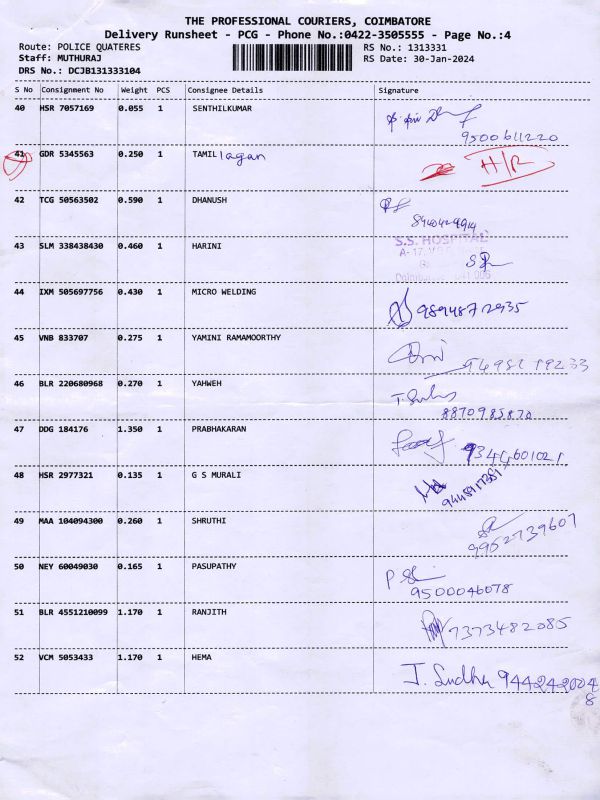 THE PROFESSIONAL COURIERS, COIMBATORE
Delivery Runsheet - PCG - Phone No.:0422-3505555 - Page No.:4
Route: POLICE QUATERES RS No.: 1313331
Staff: MUTHURAJ RS Date: 30-Jan-2024
DRS No.: DCJB131333104
S No Consignment No Weight PCS Consignee Details Signature
40 HSR 7057169 0.055 1 SENTHILKUMAR
9500611220
41 GDR 5345563 0.250 1 TAMIL lagan H/R
42 TCG 50563502 0.590 1 DHANUSH
S.S. HOSPITAL
43 SLM 338438430 0.460 1 HARINI
44 IXM 505697756 0.430 1 MICRO WELDING
9894872935
45 VNB 833707 0.275 1 YAMINI RAMAMOORTHY
46 BLR 220680968 0.270 1 YAHWEH
8870985870
47 DDG 184176 1.350 1 PRABHAKARAN
48 HSR 2977321 0.135 1 G S MURALI
49 MAA 104094300 0.260 1 SHRUTHI
9952739607
50 NEY 60049030 0.165 1 PASUPATHY
9500046078
51 BLR 4551210099 1.170 1 RANJITH
7373482085
52 VCM 5053433 1.170 1 HEMA
J. Sudha 9442420048